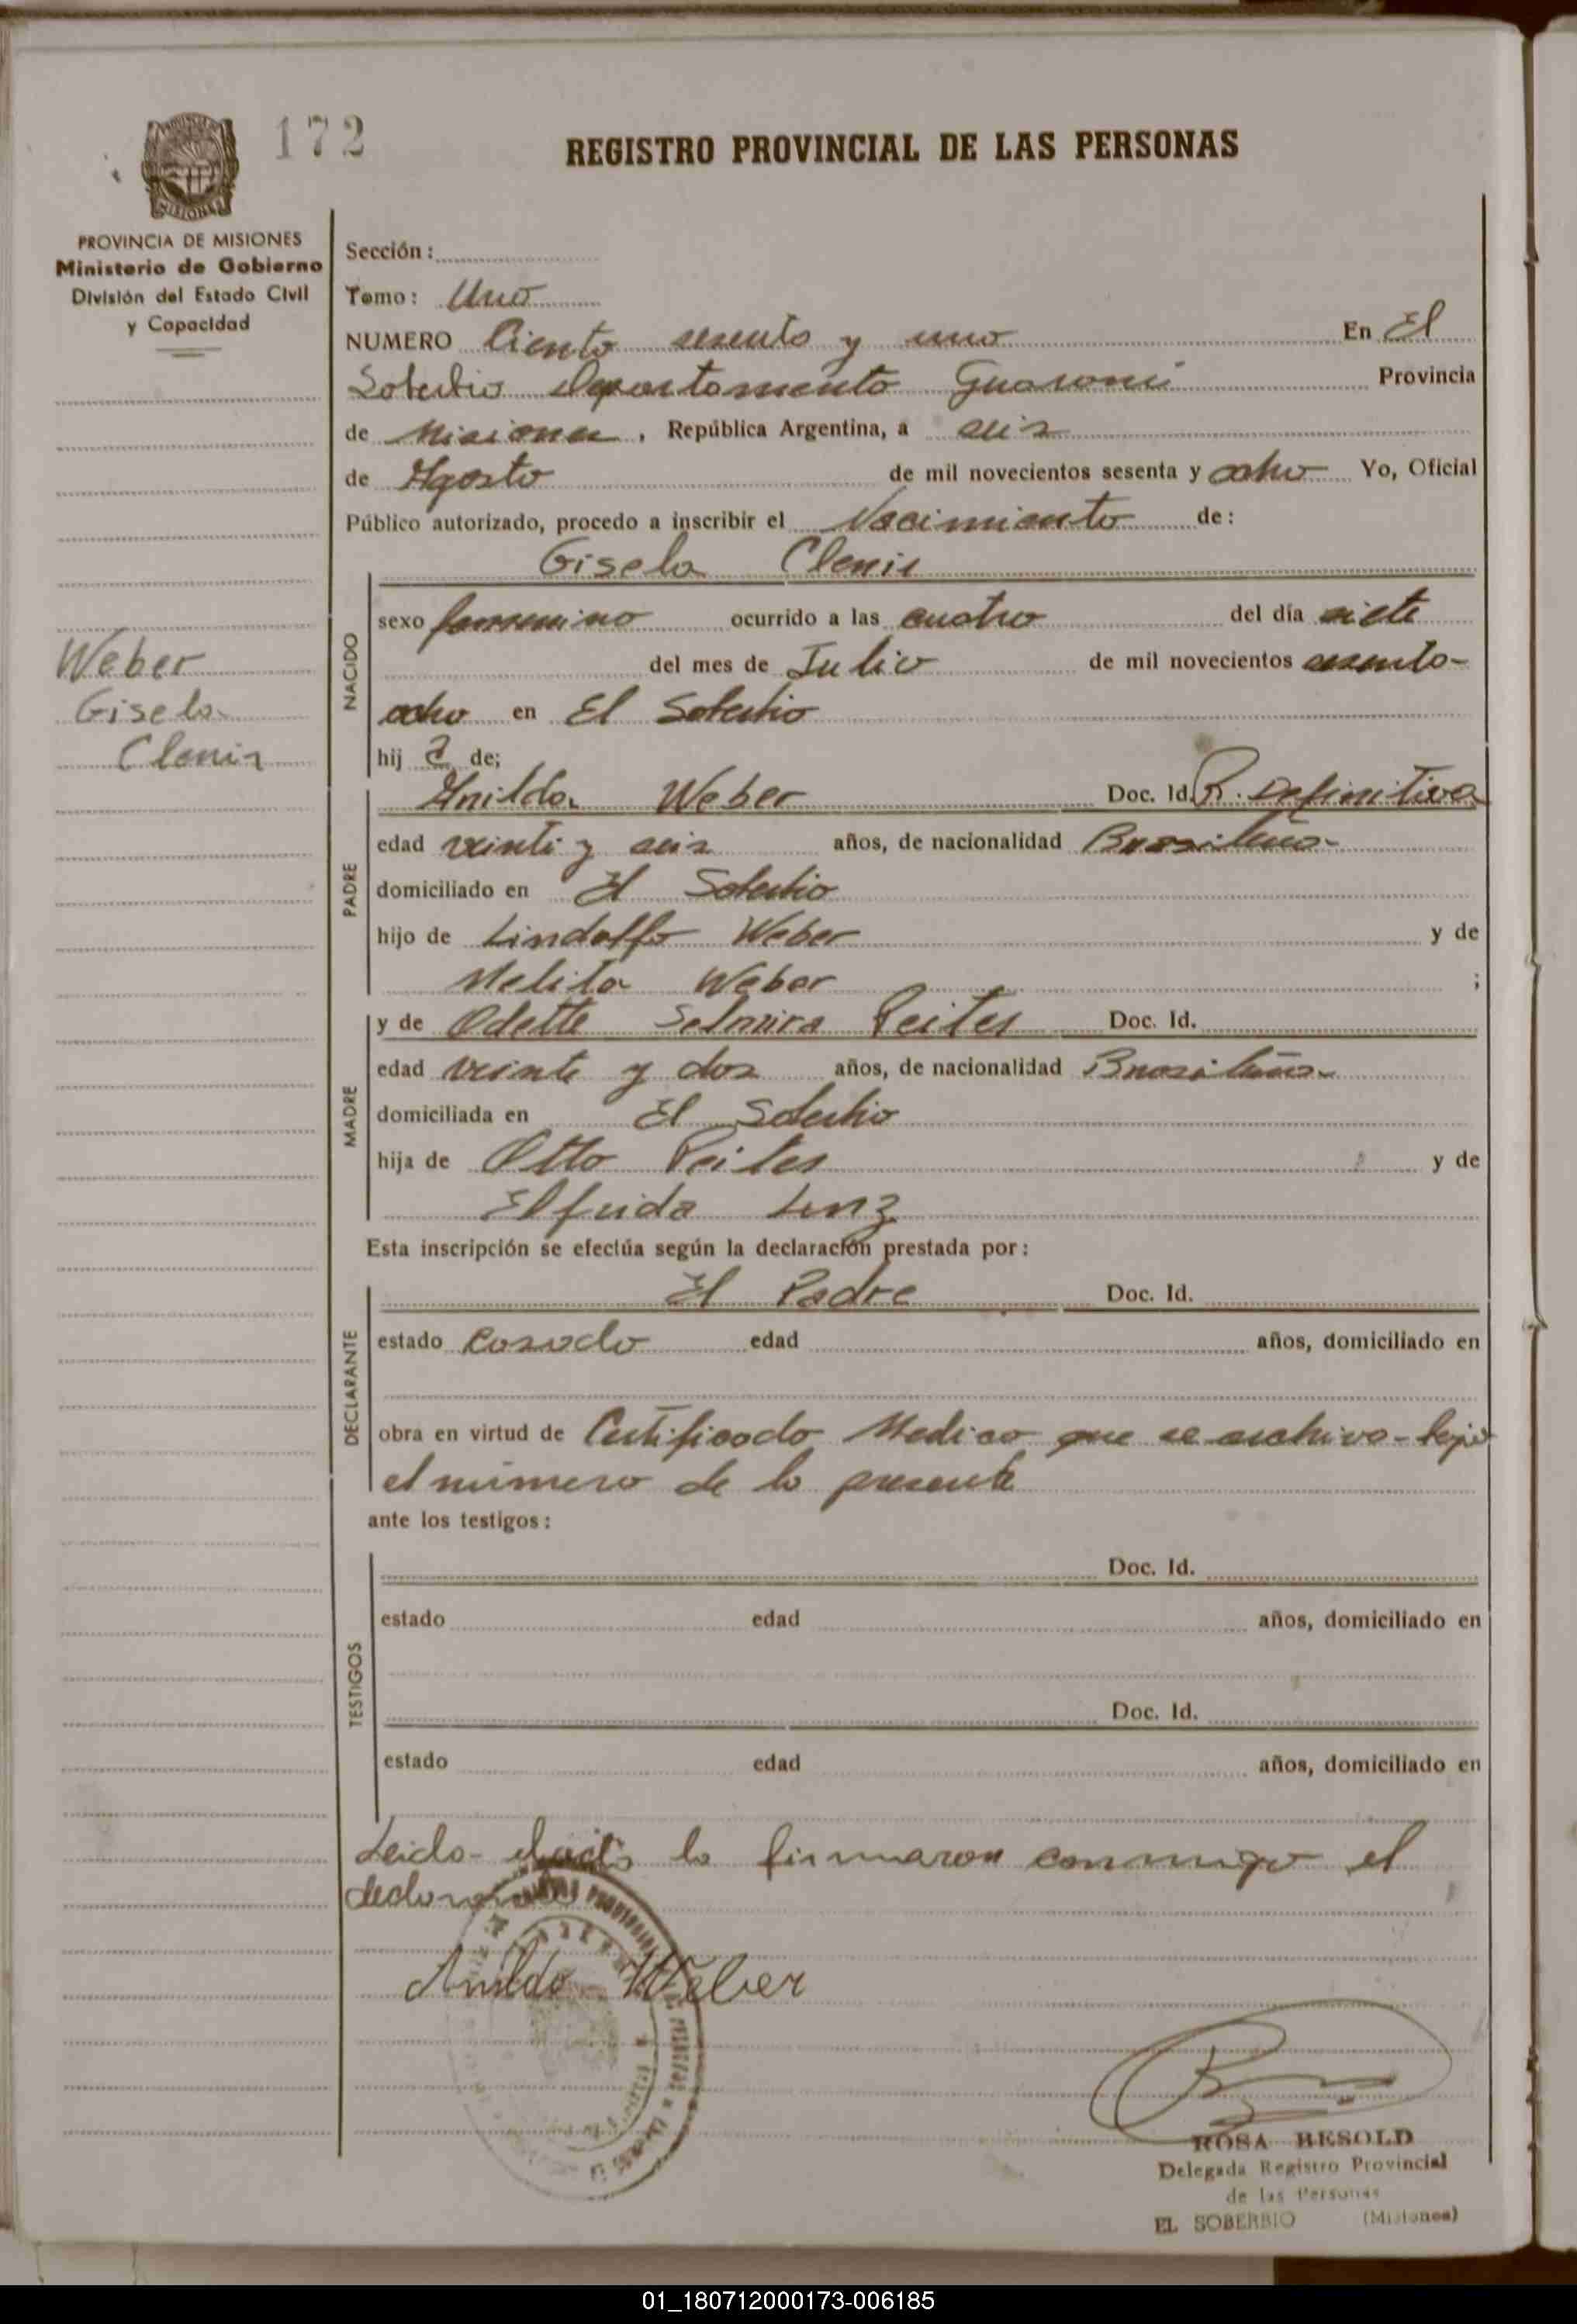 172
REGISTRO PROVINCIAL DE LAS PERSONAS
MISIONES
PROVINCIA DE MISIONES
Ministerio de Gobierno
División del Estado Civil
y Capacidad
Sección:
Tomo: Uno
NUMERO Ciento sesenta y uno En El
Soberbio Departamento Guaraní Provincia
de Misiones, República Argentina, a seis
de Agosto de mil novecientos sesenta y ocho Yo, Oficial
Público autorizado, procedo a inscribir el Nacimiento de:
Gisela Clenis
NACIDO
sexo femenino ocurrido a las cuatro del día siete
del mes de Julio de mil novecientos sesenta-
ocho en El Soberbio
hij a de;
Weber
Gisela
Clenis
PADRE
Anildo Weber Doc. Id. R. Definitiva
edad veinti y seis años, de nacionalidad Brasileño-
domiciliado en El Soberbio
hijo de Lindolfo Weber y de
Melita Weber ;
MADRE
y de Odette Selmira Peiter Doc. Id.
edad veinte y dos años, de nacionalidad Brasileña-
domiciliada en El Soberbio
hija de Otto Peiter y de
Elfrida Lenz
Esta inscripción se efectúa según la declaración prestada por:
DECLARANTE
El Padre Doc. Id.
estado Casado edad años, domiciliado en
obra en virtud de Certificado Medico que se archiva-bajo
el número de la presente
ante los testigos:
TESTIGOS
Doc. Id.
estado edad años, domiciliado en
Doc. Id.
estado edad años, domiciliado en
Leida- el acta la firmaron conmigo el
declarante
Anildo Weber
ROSA BESOLD
Delegada Registro Provincial
de las Personas
EL SOBERBIO (Misiones)
01_180712000173-006185